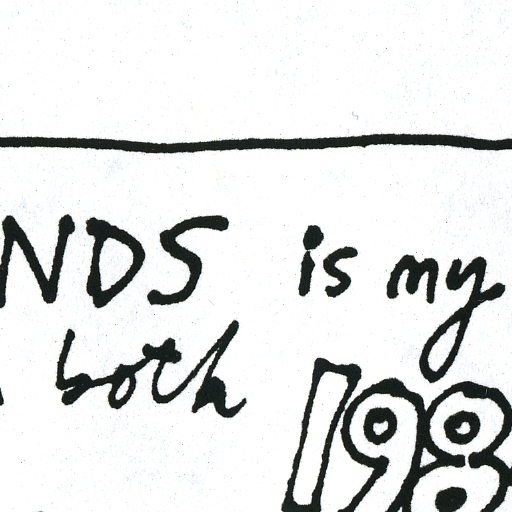 NDS is my
both
198